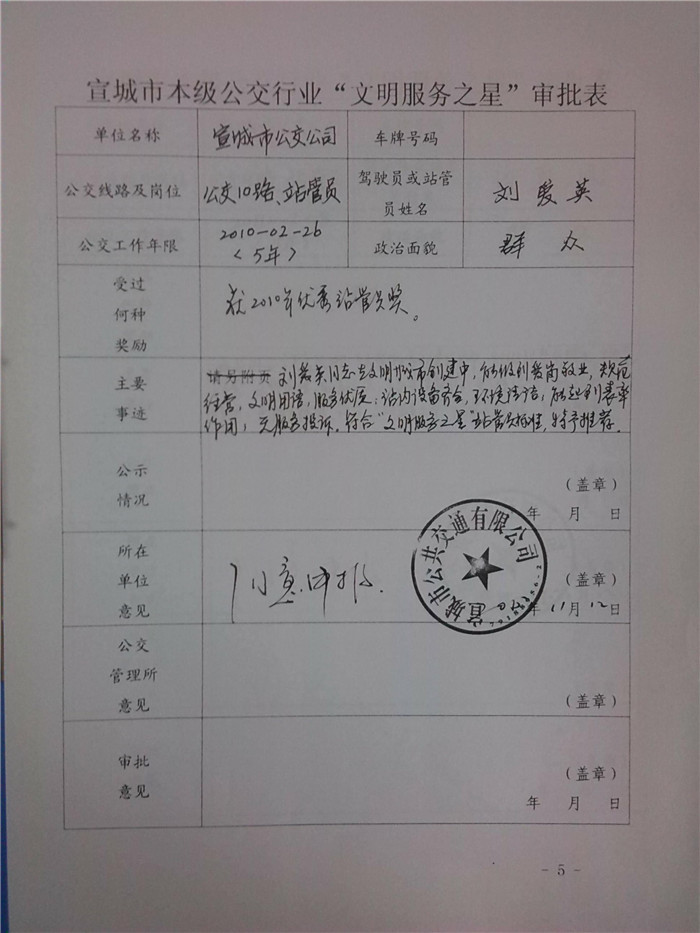 宣城市本级公交行业“文明服务之星”审批表
单位名称 宣城市公交公司 车牌号码
公交线路及岗位 公交10路、站管员 驾驶员或站管员姓名 刘爱英
公交工作年限 2010-02-26 <5年> 政治面貌 群众
受过何种奖励 获2010年优秀站管员奖。
主要事迹 请另附页 刘爱英同志在文明城市创建中,能做到爱岗敬业,规范
经营,文明用语,服务优质;站内设备齐全,环境清洁,能起到表率
作用;无服务投诉。符合“文明服务之星”站管员标准,特予推荐。
公示情况 (盖章)
年 月 日
所在单位意见 同意申报. (盖章)
年11月12日
宣城市公共交通有限公司
公交管理所意见 (盖章)
审批意见 (盖章)
年 月 日
- 5 -